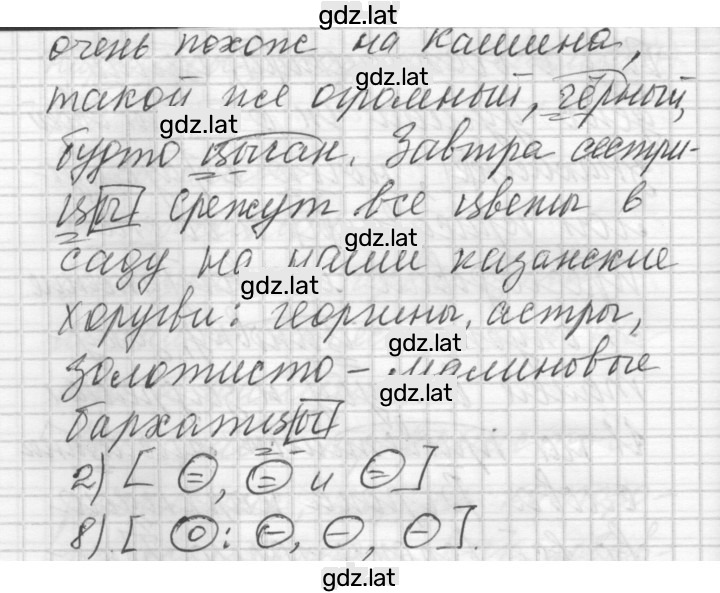 gdz.lat
очень похож на Кашина,
gdz.lat
такой же огромный, чёрный,
gdz.lat
будто цыган. Завтра сестри-
цы срежут все цветы в
gdz.lat
саду на наши казанские
gdz.lat
хоругви: георгины, астры,
gdz.lat
золотисто-малиновые
gdz.lat
бархатцы
2) [ , и ]
8) [ О: , , ].
gdz.lat